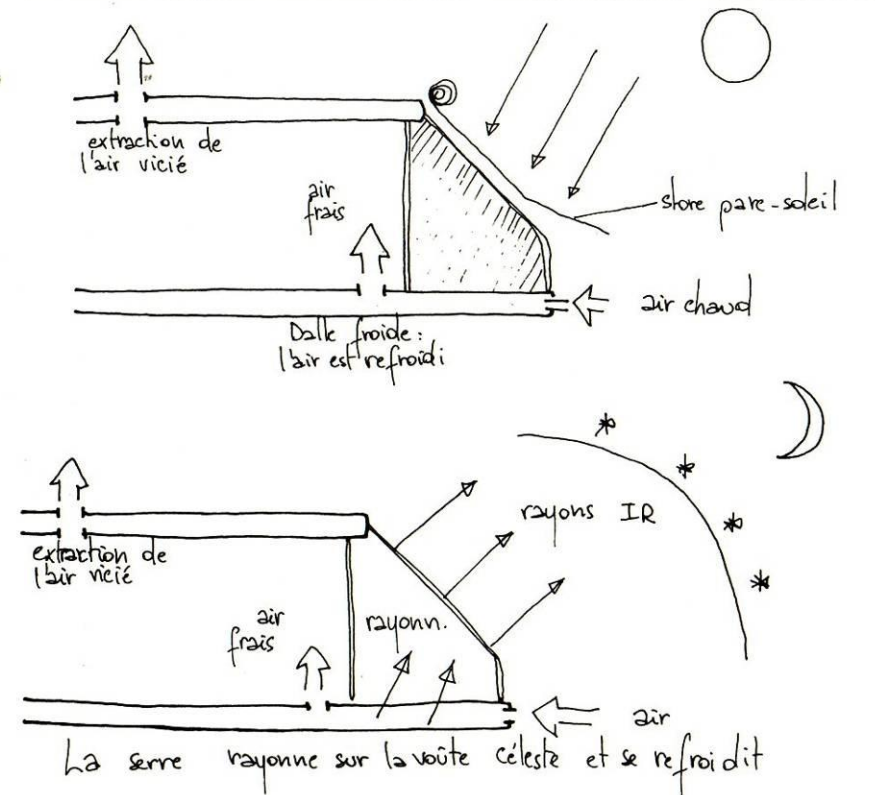 extraction de
l'air vicié
air
frais
store pare-soleil
air chaud
Dalle froide :
l'air est refroidi
rayons IR
extraction de
l'air vicié
air
frais
rayonn.
air
La serre rayonne sur la voûte céleste et se refroidit